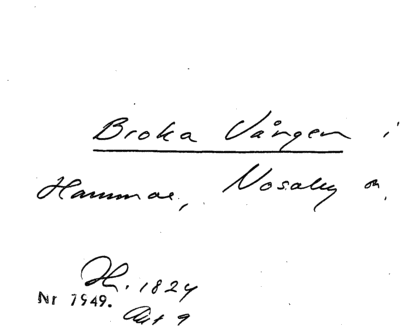 Broka Vången i
Hammar, Nosaby sn.
H. 1824
Nr 7949.
Akt 9